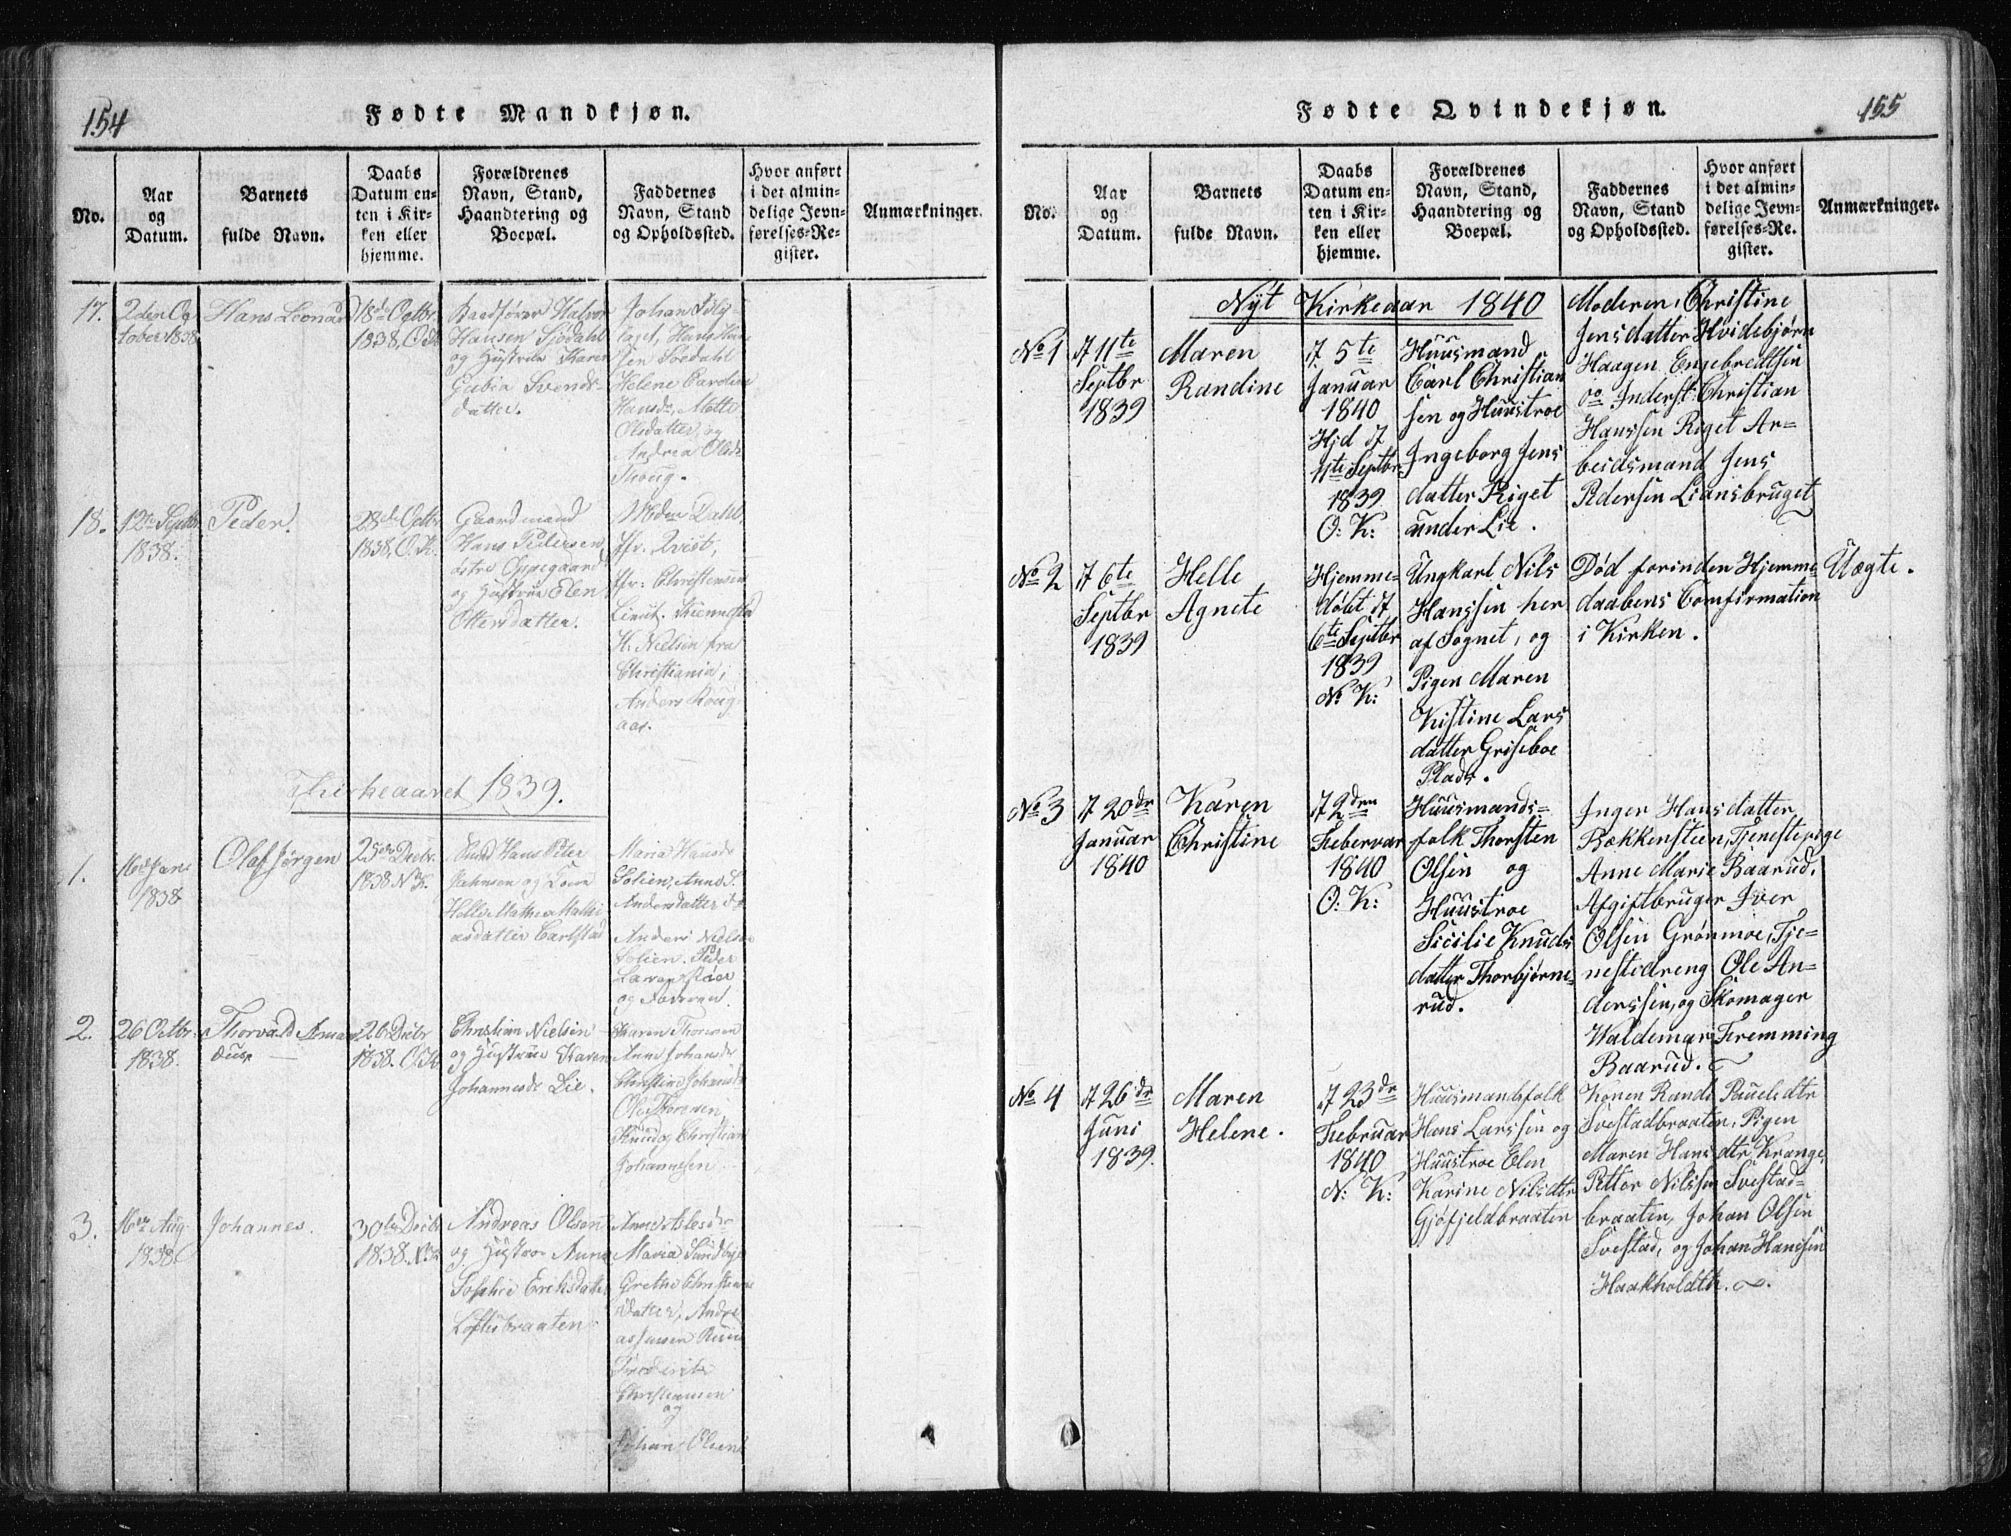 154
Fødte Mandkjøn.
No.
Aar
og
Datum.
Barnets
fulde Navn.
Daabs
Datum en-
ten i Kir-
ken eller
hjemme.
Forældrenes
Navn, Stand,
Haandtering og
Boepæl.
Faddernes
Navn, Stand
og Opholdssted.
Hvor anført
i det almin-
delige Jevn-
førelses-Re-
gister.
Anmærkninger.
17.
2den Oc
tober 1838
Hans Leonar
18de Octbr
1838, O.K.
Halvor
Hansen Sjødahl
og Hustrue Karen
Gubia Svends-
datter.
Johan
taget, Hans
sen Soedahl
Helene Caroline
Hansd., Mette
Olsdatter, og
Andrea Olsd.
18.
12te Septbr
1838.
Peder.
28de Octbr
1838, O.K.
Gaardmand
Hans Pedersen,
østre Oppegaard
og Hustrue Elen
Ottersdatter.
Dahl,
fr. Qvist,
fr. Christensen
Lieut.
H. Nielsen fra
Christiania,
Anders
aas.
Kirkeaaret 1839.
1.
1838
Olaf Jørgen
25de Decbr
1838. N.K.
Hans Peter
Jahnsen og
Helle Mathea Mathi
asdatter Carlstad
Maria Hansd.
Solien, Anne S.
Andersdatter
Anders Nielsen
Solien. Peder
og Faderen.
2.
26 Octbr.
1838.
Thorvald Aman
deus
26 Decbr
1838. O.K.
Christian Nielsen
og Hustrue Karen
Johannesd. Lie.
Karen Thoresen
Anne Johansd.
Christine Johansd.
Ole Thoresen,
Knud og Christian
Johannesen
3.
16de Aug
1838.
Johannes.
30te Decbr
1838. N.K.
Andreas Olsen
og Hustroe Anne
Sophie Eriksdatter
Løftesbraaten.
Anne Aslesd.
Maria Sundbye
Grethe Christians
datter, Andre
as Jussen
Frederik
Christiansen
og
Johan Olsen
155
Fødte Qvindekjøn.
No.
Aar
og
Datum.
Barnets
fulde Navn.
Daabs
Datum en-
ten i Kir-
ken eller
hjemme.
Forældrenes
Navn, Stand,
Haandtering og
Boepæl.
Faddernes
Navn, Stand
og Opholdssted.
Hvor anført
i det almin-
delige Jevn-
førelses-Re-
gister.
Anmærkninger.
Nyt Kirkeaar 1840
No 1
d 11te
Septbr
1839
Maren
Randine
d. 5te
Januar
1840
Hjd d
11te Septbr
1839
O: K:
Huusmand
Carl Christian
sen og Huustroe
Ingeborg Jens
datter Riget
under Lie.
Moderen, Christine
Jensdatter Hvidebjørn
Haagen Engebredtsen
og Inderst Christian
Hanssen Riget Ar-
beidsmand Jens
Pedersen Liansbruget
No 2
d 6te
Septbr
1839
Helle
Agnete
Hjemme-
døbt d
6te Septbr
1839
N: K:
Ungkarl Nils
Hanssen her
af Sognet, og
Pigen Maren
Kistine Lars
datter Griseboe
Plads.
Død forinden Hjemme-
daabens Comfirmation
i Kirken.
Uægte.
No 3
d 20de
Januar
1840
Karen
Christine
d 2den
Febervar
1840
O: K:
Huusmands-
folk Thorsten
Olsen og
Huustroe
Sicilie Knuds
datter Thorbjørns-
rud.
Inger Hansdatter
Bækkensteen, Tjenestepige
Anne Marie Baarud,
Afgiftbruger Iver
Olsen Grønmoe, Tje-
nestedreng Ole An-
derssen, og Skomager
Waldemar Fremming
Baarud.
No 4
d 26de
Juni
1839.
Maren
Helene.
d 23de
Februar
1840
N: K:
Huusmandsfolk
Hans Larssen og
Huustroe Elen
Karine Nilsdtr
Gjøfjeldbraaten
Konen Randi Pauelsdtr
Svestadbraaten, Pigen
Maren Hansdtr Krange,
Petter Nilssen Svestad-
braaten, Johan Olsen
Svestad, og Johan Hanssen
Haakholdth.